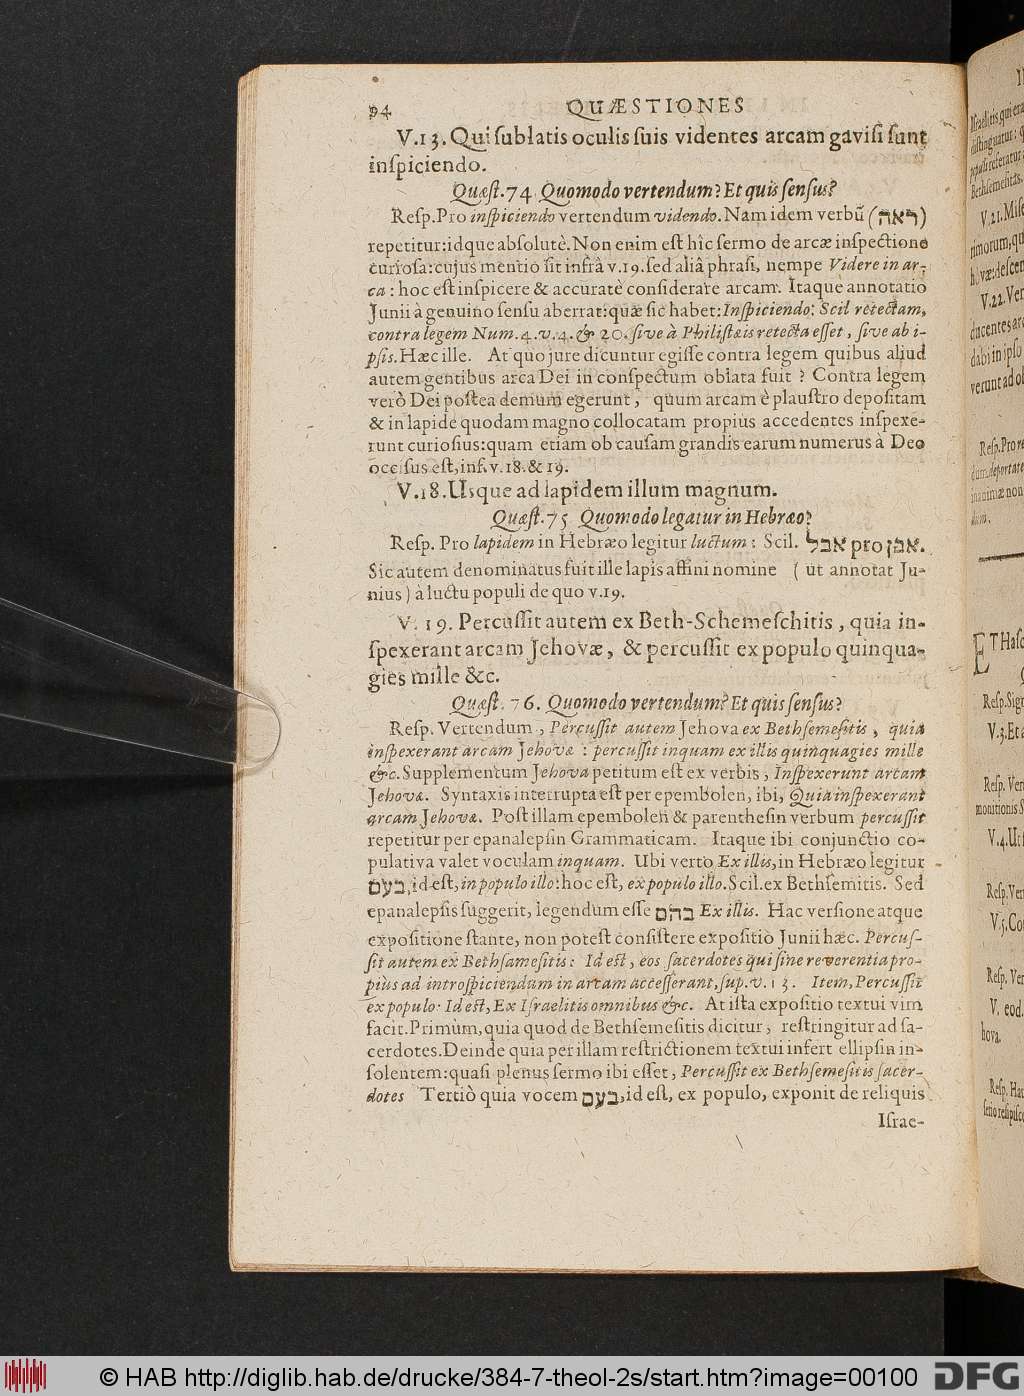 94 QUÆSTIONES
V.13. Qui sublatis oculis suis videntes arcam gavisi sunt
inspiciendo.
Quæst. 74 Quomodo vertendum? Et quis sensus?
Resp. Pro inspiciendo vertendum videndo. Nam idem verbũ (ראה)
repetitur: idque absolutè. Non enim est hîc sermo de arcæ inspectione
curiosa: cujus mentio fit infrâ v. 19. sed aliâ phrasi, nempe Videre in ar-
ca: hoc est inspicere & accuratè considerare arcam. Itaque annotatio
Junii à genuino sensu aberrat: quæ sic habet: Inspiciendo: Scil retectam,
contra legem Num. 4. v. 4. & 20. sive à Philistæis retecta esset, sive ab i-
psis. Hæc ille. At quo jure dicuntur egisse contra legem quibus aliud
autem gentibus arca Dei in conspectum oblata fuit? Contra legem
verò Dei postea demum egerunt, quum arcam è plaustro depositam
& in lapide quodam magno collocatam propius accedentes inspexe-
runt curiosius: quam etiam ob causam grandis earum numerus à Deo
occisus est, inf. v. 18. & 19.
V.18. Usque ad lapidem illum magnum.
Quæst. 75 Quomodo legatur in Hebræo?
Resp. Pro lapidem in Hebræo legitur luctum: Scil. אבל pro אבן.
Sic autem denominatus fuit ille lapis affini nomine (ut annotat Ju-
nius) à luctu populi de quo v. 19.
V. 19. Percussit autem ex Beth-Schemeschitis, quia in-
spexerant arcam Jehovæ, & percussit ex populo quinqua-
gies mille &c.
Quæst. 76. Quomodo vertendum? Et quis sensus?
Resp. Vertendum, Percussit autem Jehova ex Bethsemesitis, quia
inspexerant arcam Jehovæ: percussit inquam ex illis quinquagies mille
&c. Supplementum Jehova petitum est ex verbis, Inspexerunt arcam
Jehovæ. Syntaxis interrupta est per epembolen, ibi, Quia inspexerant
arcam Jehovæ. Post illam epembolen & parenthesin verbum percussit
repetitur per epanalepsin Grammaticam. Itaque ibi conjunctio co-
pulativa valet voculam inquam. Ubi verto Ex illis, in Hebræo legitur
בעם, id est, in populo illo: hoc est, ex populo illo. Scil. ex Bethsemitis. Sed
epanalepsis suggerit, legendum esse בהם Ex illis. Hac versione atque
expositione stante, non potest consistere expositio Junii hæc. Percus-
sit autem ex Bethsamesitis: Id est, eos sacerdotes qui sine reverentia pro-
pius ad introspiciendum in arcam accesserant, sup. v. 13. Item, Percussit
ex populo: Id est, Ex Israelitis omnibus &c. At ista expositio textui vim
facit. Primùm, quia quod de Bethsemesitis dicitur, restringitur ad sa-
cerdotes. Deinde quia per illam restrictionem textui infert ellipsin in-
solentem: quasi plenus sermo ibi esset, Percussit ex Bethsemesitis sacer-
dotes Tertiò quia vocem בעם, id est, ex populo, exponit de reliquis
Israe-
distinguatur:
Bethsemesitas,
V. 21. Mise
V. 22. Ven
dabi in ipso
verunt ad
Resp. Pro re
ET Hasc
Resp. Sign
V. 3. Et a
Resp. Ver
monitionis S
V. 4. Ut
Resp. Ver
V. 5. Co
Resp. Ver
V. eod.
hova.
Resp. Hac
© HAB http://diglib.hab.de/drucke/384-7-theol-2s/start.htm?image=00100
DFG